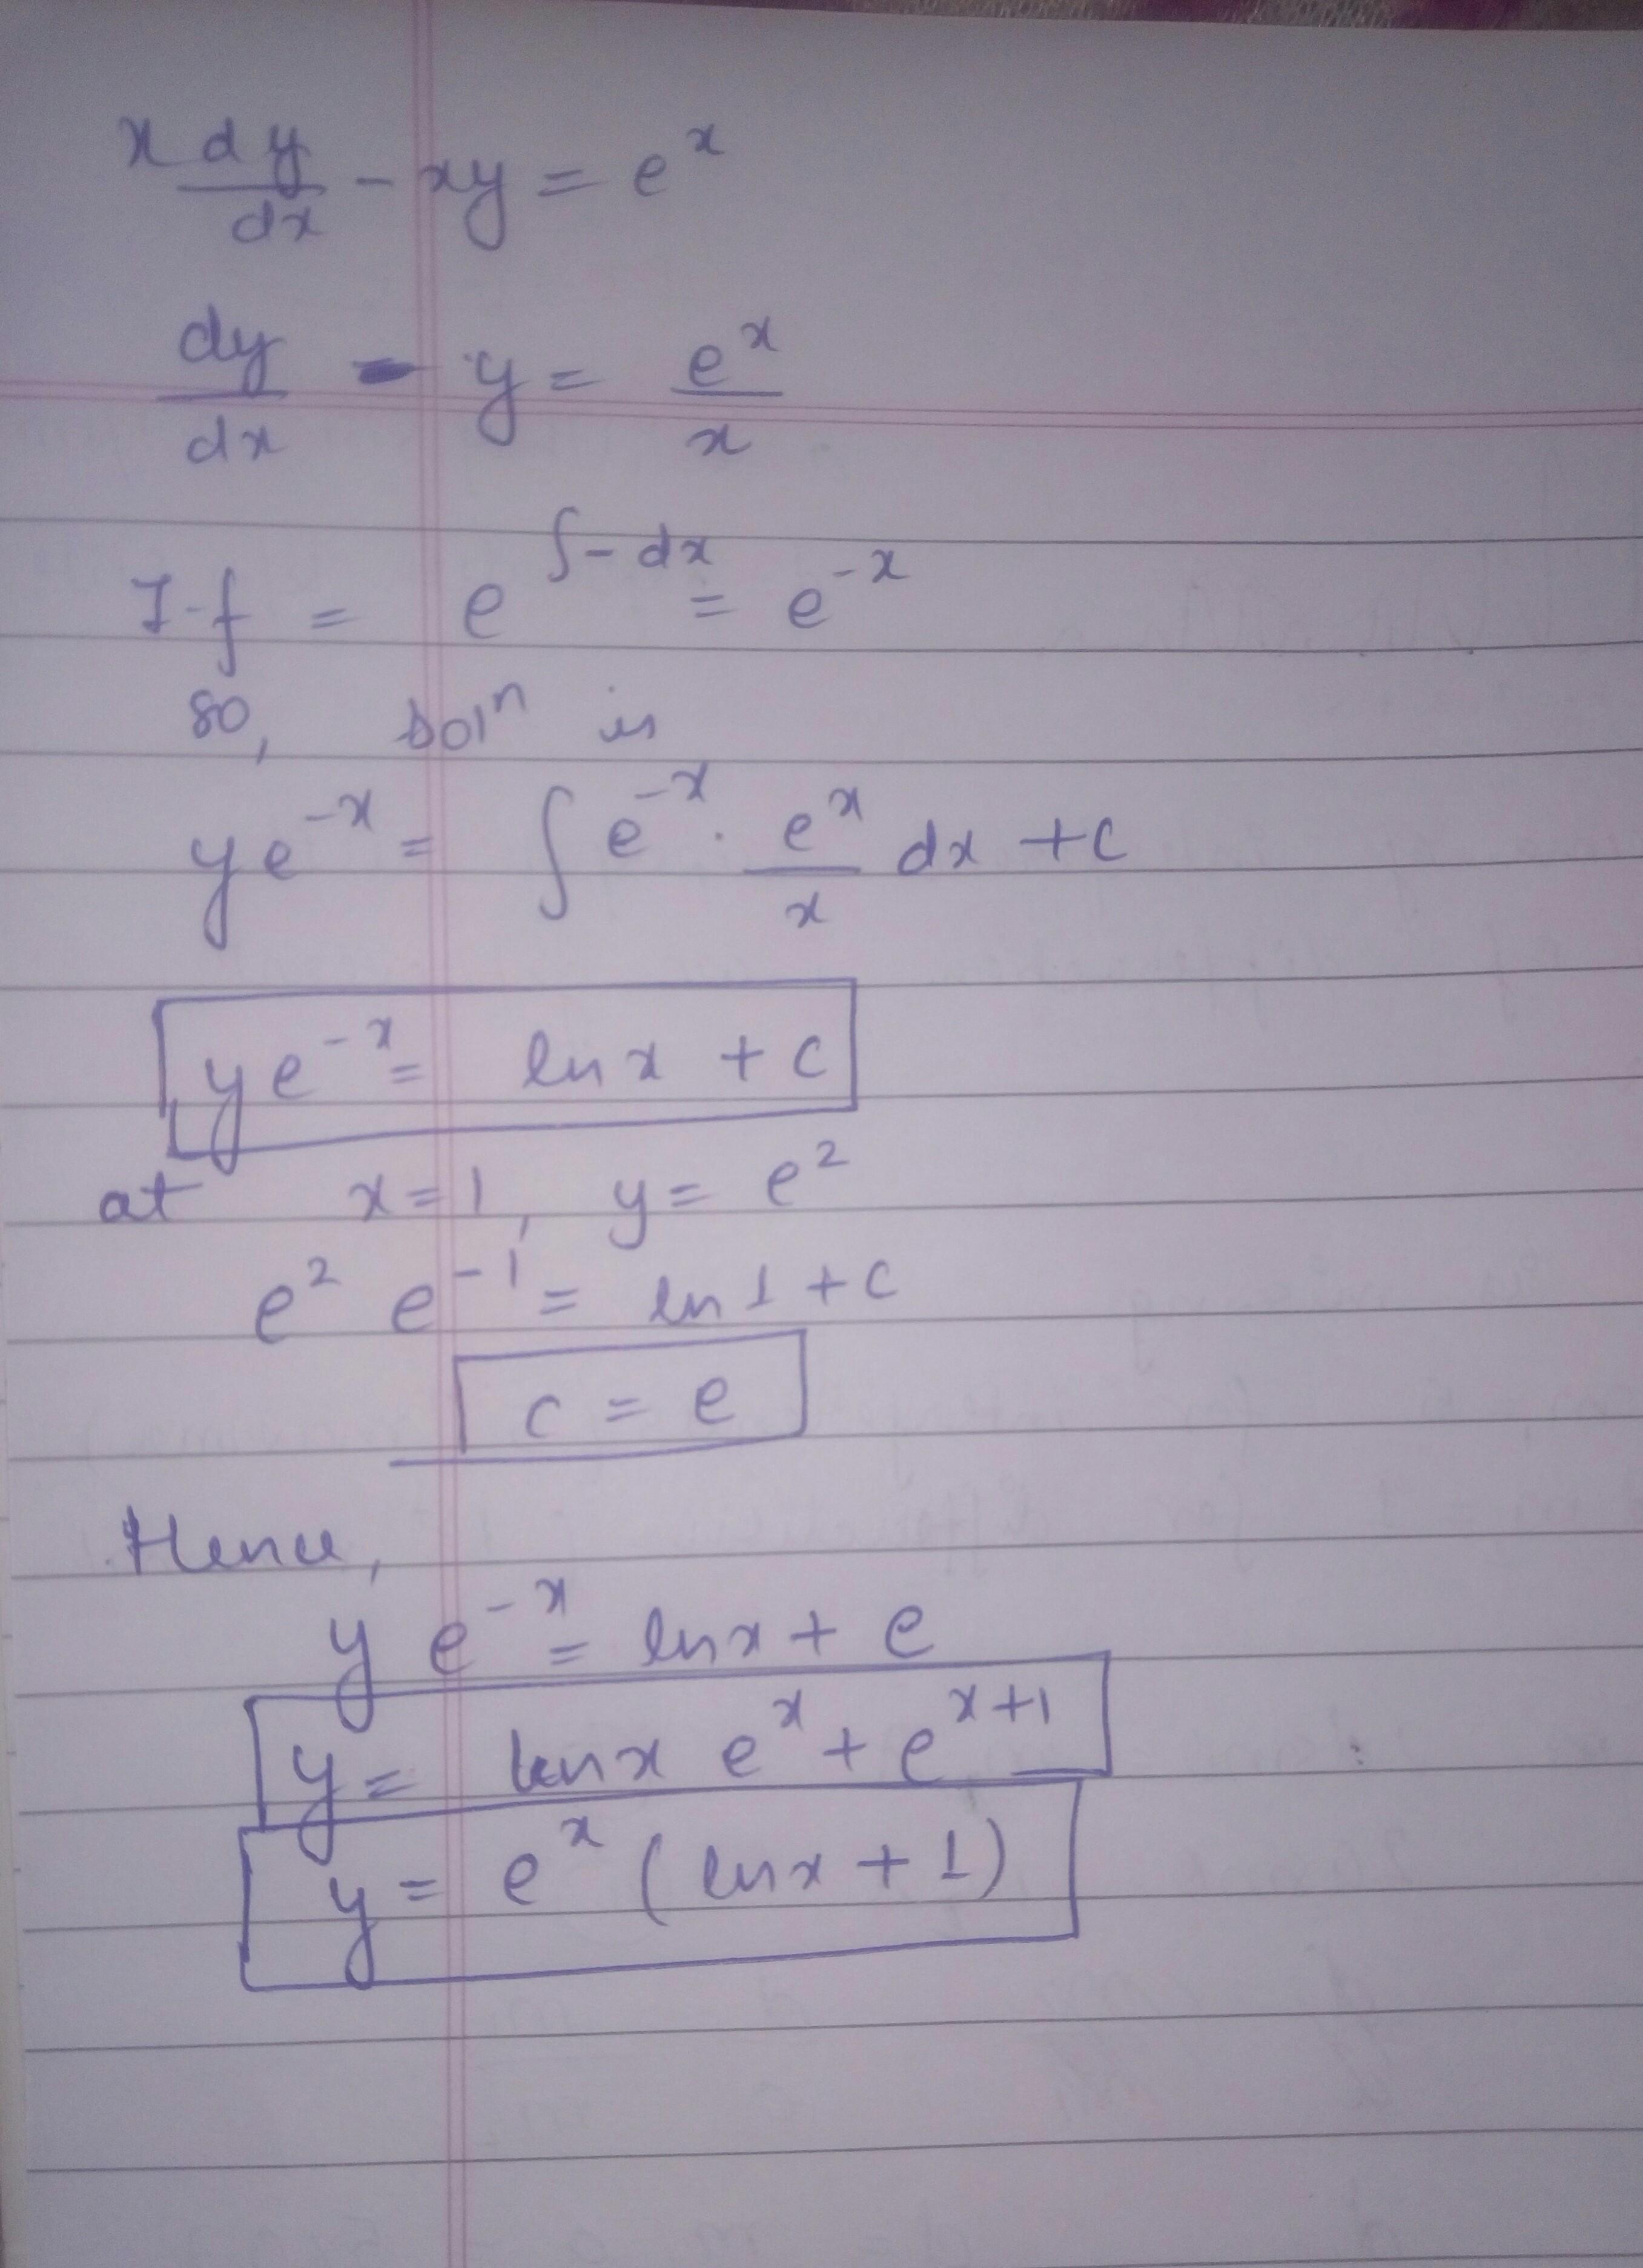 x dy/dx - xy = e^x
dy/dx - y = e^x/x
I.f = e^∫-dx = e^-x
so, solⁿ is
ye^-x = ∫ e^-x . e^x/x dx + c
ye^-x = ln x + c
at x = 1, y = e^2
e^2 e^-1 = ln 1 + c
c = e
Hence,
y e^-x = ln x + e
y = ln x e^x + e^x+1
y = e^x (ln x + 1)